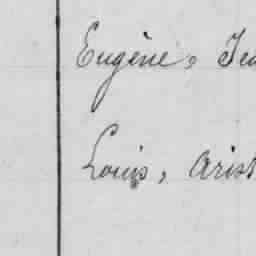 Eugène, Jea
Louis, Arist